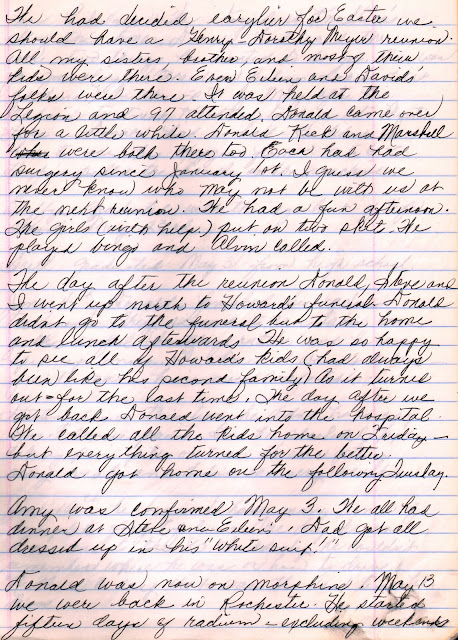 We had decided earylier for Easter we
should have a Henry - Dorothy Meyer reunion.
All my sisters, brother, and most of their
kids were there. Even Eileen and Davids'
folks were there. It was held at the
Legion and 97 attended, Donald came over
for a little while. Donald Rick and Marshall
were both there too, Each had had
surgery since January 1st. I guess we
never know who may not be with us at
the next reunion. We had a fun afternoon.
The girls (with help) put on two skits. We
played bingo and Alvin called.
The day after the reunion Donald, Steve and
I went up north to Howard's funeral. Donald
didn't go to the funeral but to the home
and lunch afterwards, He was so happy
to see all of Howard's kids (had always
been like his second family) As it turned
out = for the last time. The day after we
got back Donald went into the hospital.
We called all the kids home on Friday -
but everything turned for the better.
Donald got home on the following Tuesday.
Amy was confirmed May 3. We all had
dinner at Steve and Eileen's. Dad got all
dressed up in his "white suit!"
Donald was now on morphine. May 13
we were back in Rochester. He started
fifteen days of radium - excluding weekends